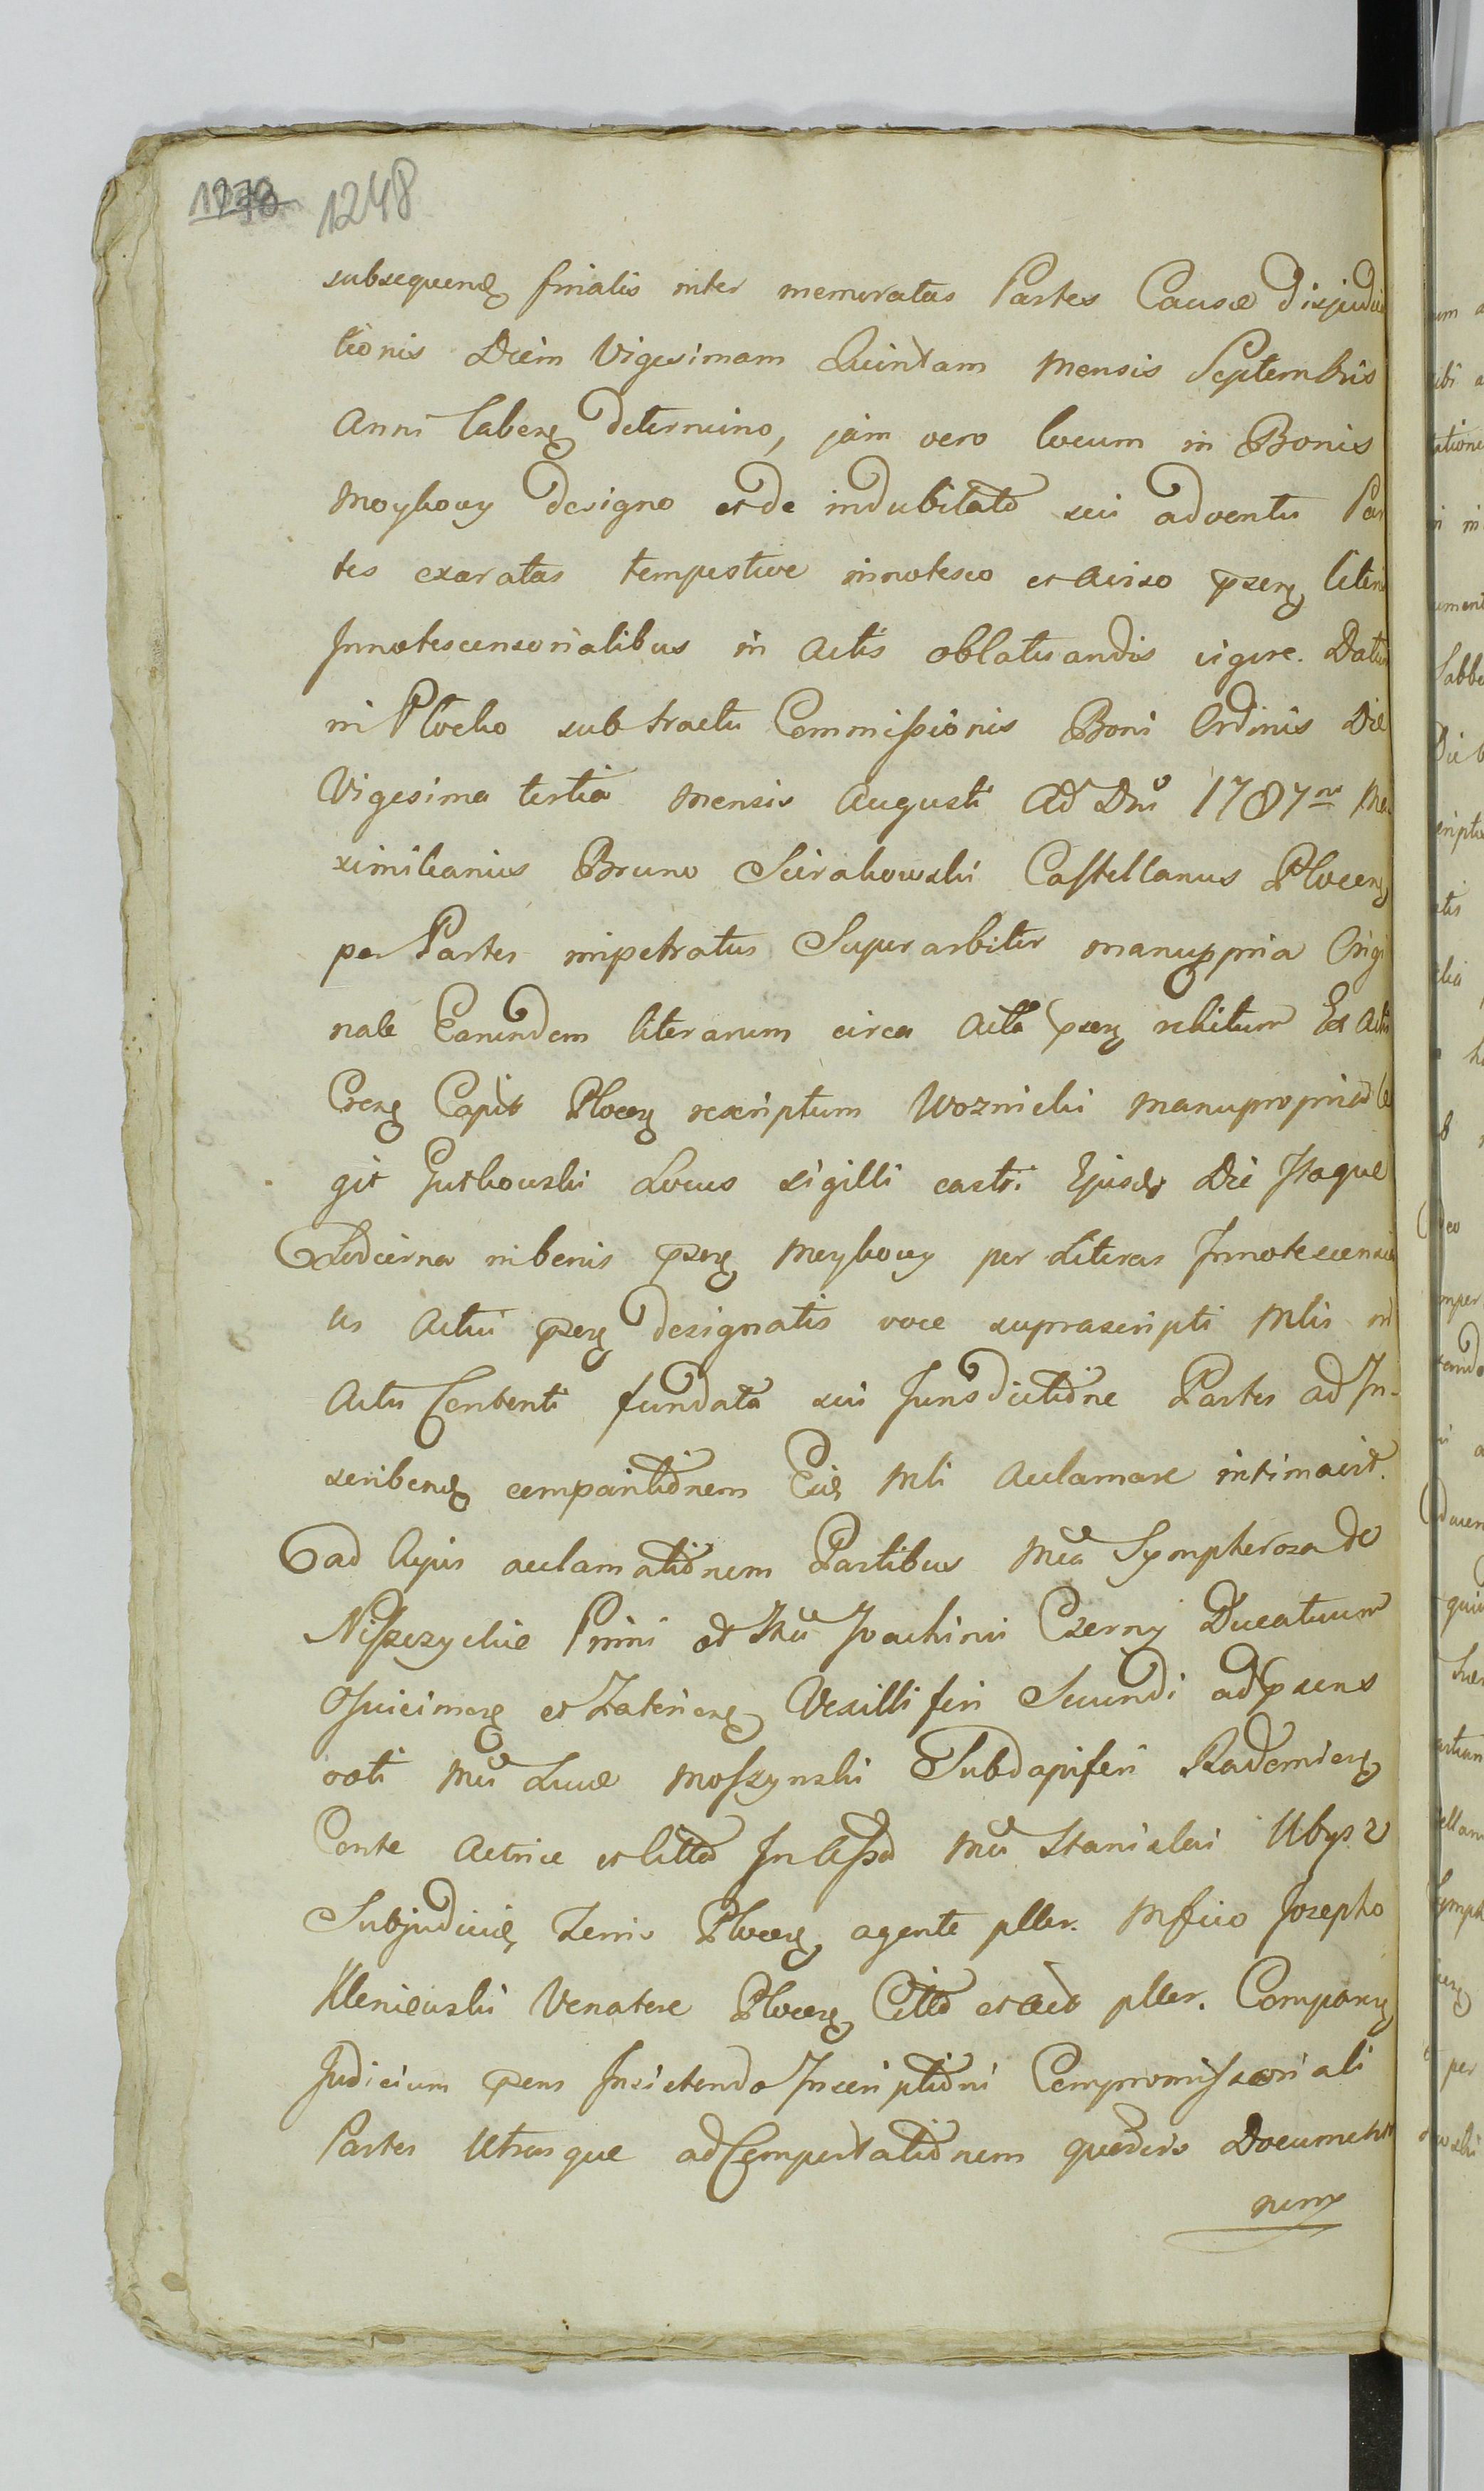 1248
subsequenę finalis inter memoratas Partes Causæ disjudica
tionis Diem Vigesimam Quintam Mensis Septembris
Anni labenę determino, jam vero locum in Bonis
Moykowy designo et de indubitato sui adventu Par
tes exaratas tempestive innotesco et aviso pnserę literis
Innotescensorialibus in Actis oblatuandis vigore. Datum
in Plocko sub tractu Commissionis Boni Ordinis Die
Vigesima tertia Mensis Augusti Ao Dni 1787mo Ma
ximilianus Bruno Sierakowski Castellanus Plocenę
per Partes impetratus Superarbiter manuppria Origi
nale Earundem literarum circa Acta pnserę relictum Ex Actis
Crenę Capit Plocenę rescriptum Woznicki manupropria Le
git Gutkowski Locus sigilli castri Ejusdę Die Itaque
Hodierna in bonis pnserę Moykowy per Literas Innotescensoria
les Actui pnserę designatis voce suprascripti Mlis in
Actu Contenti fundata sui Jurisdictione Partes ad In-
scribenę comparitionem Eidę Mli Acclamare intimavit.
Ad Cujus acclamationem Partibus Mcæ Sympherosa de
Niszczyckie Primi et Mci Joachimi Czerny Ducatuum
Osviecimenę et Zatorienę Vexilliferi Secundi ad pnsens
voti Mci Lucæ Moszynski Subdapiferi Radomienę
Conte Actrice et citto In Causa Mci Stanislai Ubysz
Subjudicis Terris Plocenę agente pller. Mfico Josepho
Kleniewski Venatore Plocenę Citto et act pller. Comparenę
Judicium pnsens Insistendo Inscriptioni Compromissoriali
Partes Utrasque ad Comportationem quorvis Documento
rum